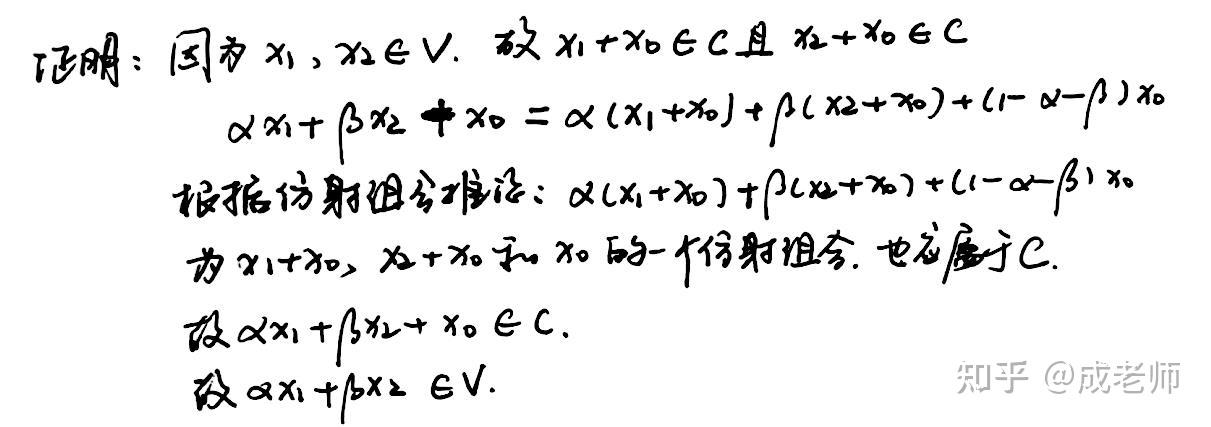 证明：因为 x₁, x₂ ∈ V. 故 x₁+x₀ ∈ C 且 x₂+x₀ ∈ C
αx₁+βx₂+x₀ = α(x₁+x₀)+β(x₂+x₀)+(1-α-β)x₀
根据仿射组合推论：α(x₁+x₀)+β(x₂+x₀)+(1-α-β)x₀
为 x₁+x₀, x₂+x₀ 和 x₀ 的一个仿射组合. 也应属于C.
故 αx₁+βx₂+x₀ ∈ C.
故 αx₁+βx₂ ∈ V.
知乎 @成老师